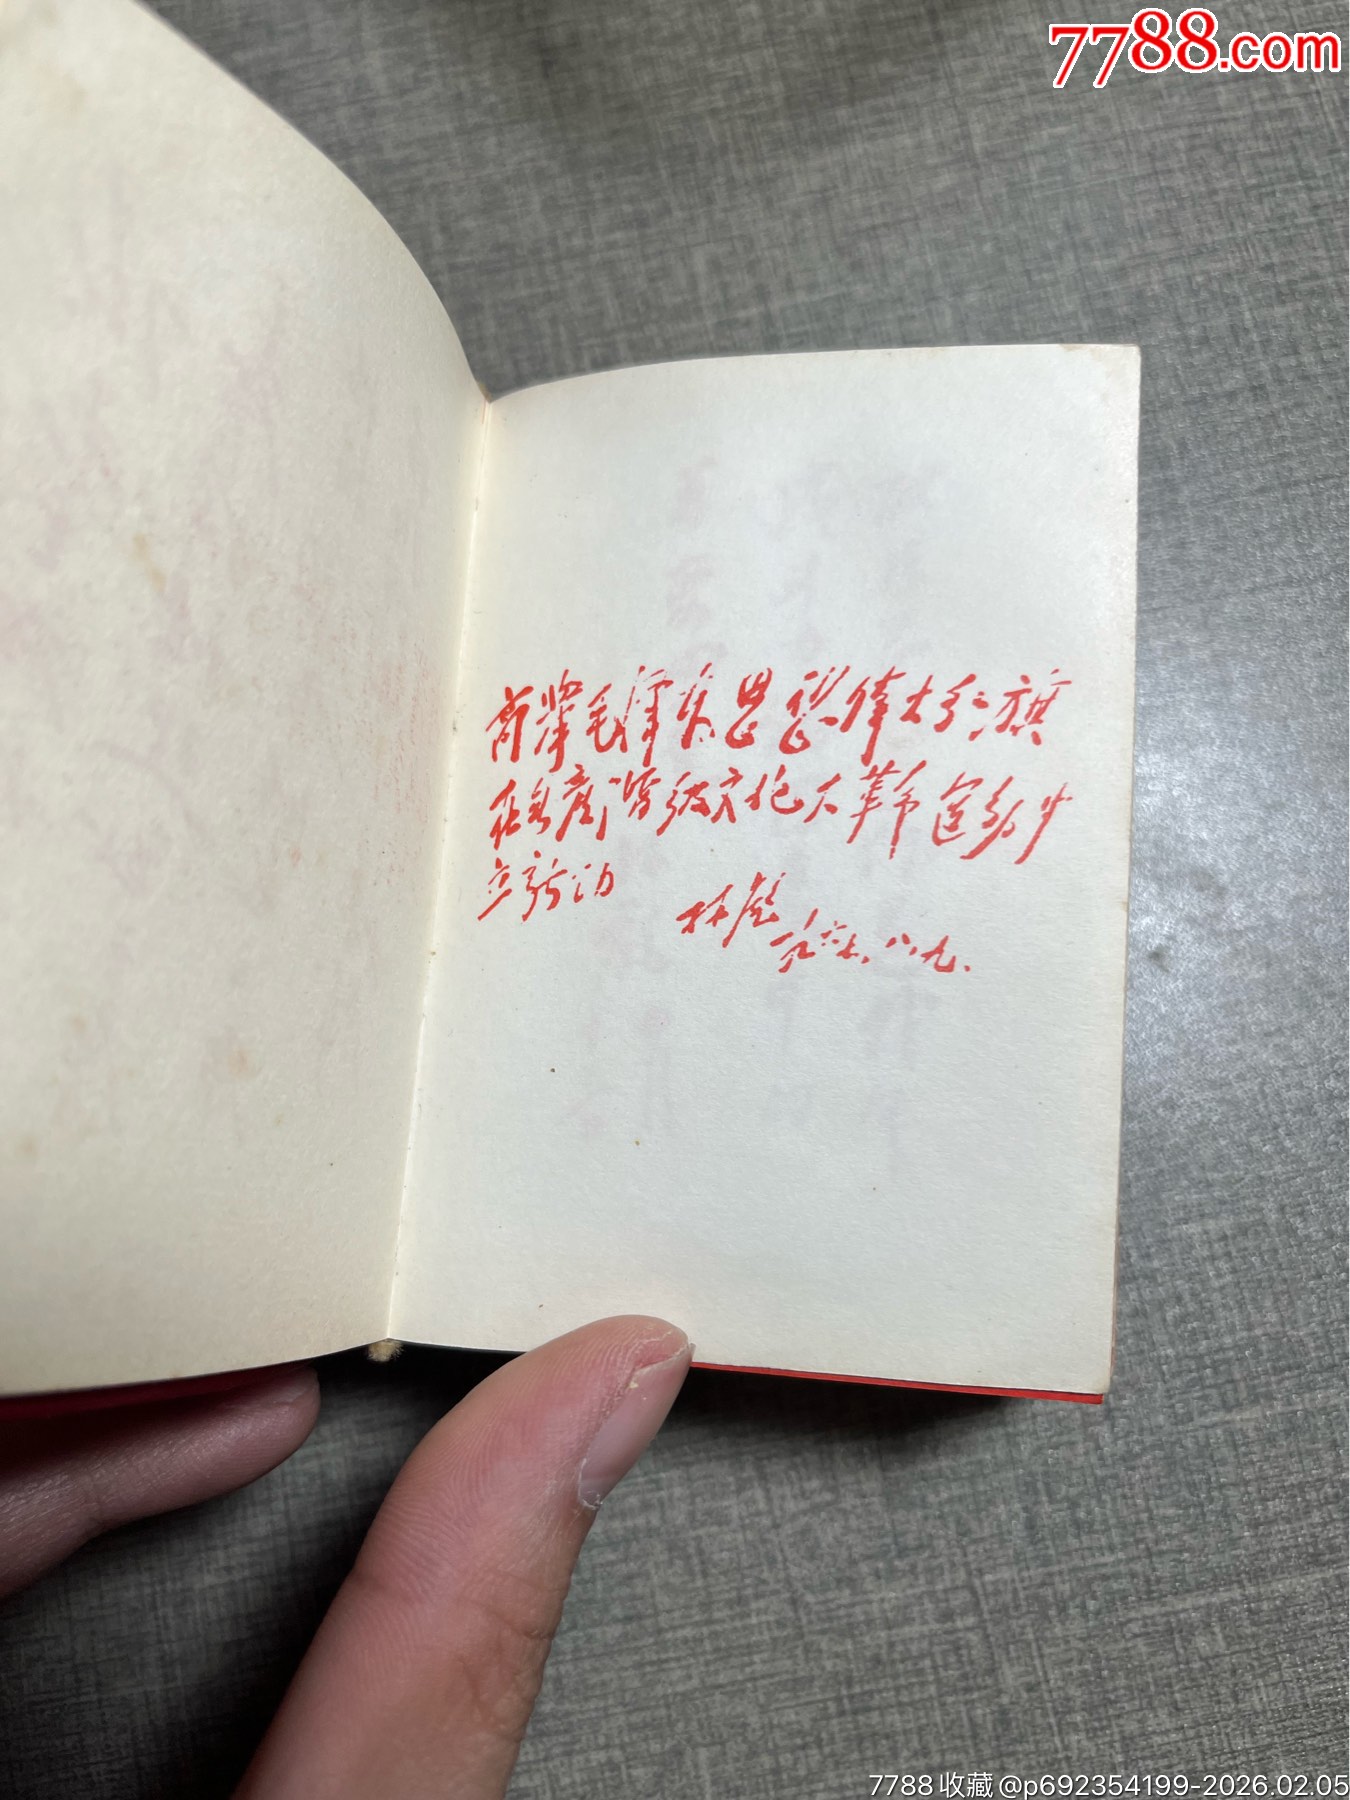 7788.com
高举毛泽东思想伟大红旗
在无产阶级文化大革命运动中
立新功
林彪
一九六七.八.九.
7788收藏@p692354199-2026.02.05